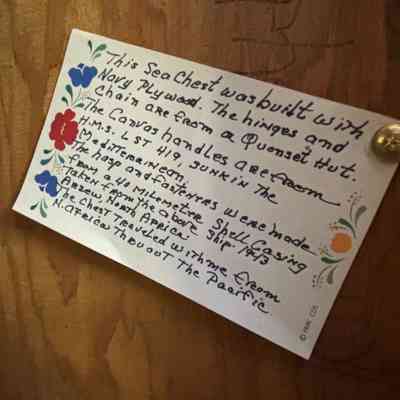 This Sea Chest was built with
Navy Plywood. The hinges and
Chain are from a Quonset Hut.
The Canvas handles are from
H.M.S. LST 419, sunk in the
Mediterrinean
The hasp and fastenres were made
from a 40 Milemetre Shell Casing
Taken from the above Ship 1943
Arzew North Africa
The Chest Traveled with me from
N. Africa Thruout The Pacific